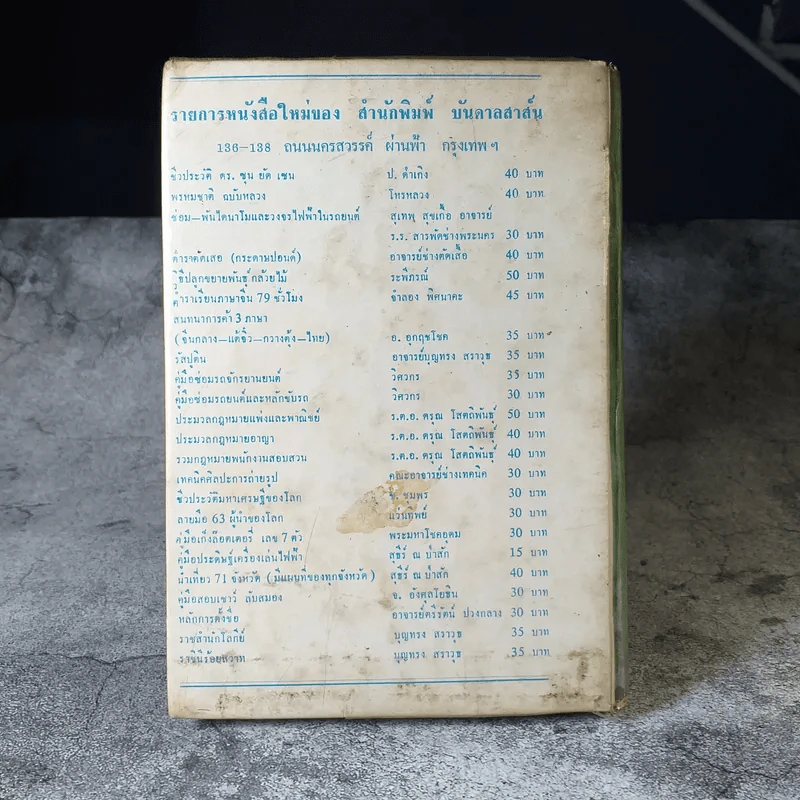 รายการหนังสือใหม่ของ สำนักพิมพ์ บันดาลสาส์น
136–138 ถนนนครสวรรค์ ผ่านฟ้า กรุงเทพฯ
ชีวประวัติ ดร. ซุน ยัด เซน ป. ดำเกิง 40 บาท
พรหมชาติ ฉบับหลวง โหรหลวง 40 บาท
ซ่อม—พันไดนาโมและวงจรไฟฟ้าในรถยนต์ สุเทพ สุขเกื้อ อาจารย์
ร.ร. สารพัดช่างพระนคร 30 บาท
ตำราตัดเสื้อ (กระดาษปอนด์) อาจารย์ช่างตัดเสื้อ 40 บาท
วิธีปลูกขยายพันธุ์กล้วยไม้ ระพีภรณ์ 50 บาท
ตำราเรียนภาษาจีน 79 ชั่วโมง จำลอง พิศนาคะ 45 บาท
สนทนาการค้า 3 ภาษา
(จีนกลาง—แต้จิ๋ว—กวางตุ้ง—ไทย) อ. อุกฤชโชค 35 บาท
รัสปูติน อาจารย์บุญทรง สราวุธ 35 บาท
คู่มือซ่อมรถจักรยานยนต์ วิศวกร 35 บาท
คู่มือซ่อมรถยนต์และหลักขับรถ วิศวกร 30 บาท
ประมวลกฎหมายแพ่งและพาณิชย์ ร.ต.อ. ดรุณ โสตถิพันธุ์ 50 บาท
ประมวลกฎหมายอาญา ร.ต.อ. ดรุณ โสตถิพันธุ์ 40 บาท
รวมกฎหมายพนักงานสอบสวน ร.ต.อ. ดรุณ โสตถิพันธุ์ 40 บาท
เทคนิคศิลปะการถ่ายรูป คณะอาจารย์ช่างเทคนิค 30 บาท
ชีวประวัติมหาเศรษฐีของโลก ชมพร 30 บาท
ลายมือ 63 ผู้นำของโลก แว่นทิพย์ 30 บาท
คู่มือเก็งล๊อตเตอรี่ เลข 7 ตัว พระมหาโชคอุดม 30 บาท
คู่มือประดิษฐ์เครื่องเล่นไฟฟ้า สุธีร์ ณ ป่าสัก 15 บาท
นำเที่ยว 71 จังหวัด (มีแผนที่ของทุกจังหวัด) สุธีร์ ณ ป่าสัก 40 บาท
คู่มือสอบเชาว์ ลับสมอง จ. อังศุลโยธิน 30 บาท
หลักการตั้งชื่อ อาจารย์ศรีรัตน์ ปวงกลาง 30 บาท
ราชสำนักโลกีย์ บุญทรง สราวุธ 35 บาท
ราชินีร้อยสวาท บุญทรง สราวุธ 35 บาท